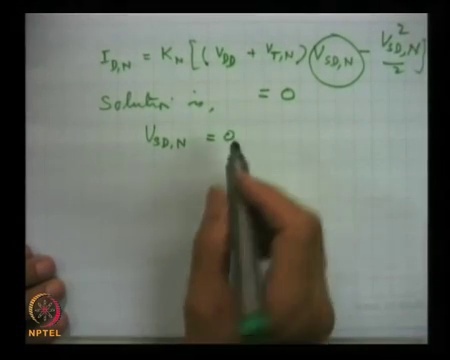 I_D,N = K_N [(V_DD + V_T,N) V_SD,N − V²_SD,N/2]
= 0
Solution is,
V_SD,N = 0
NPTEL